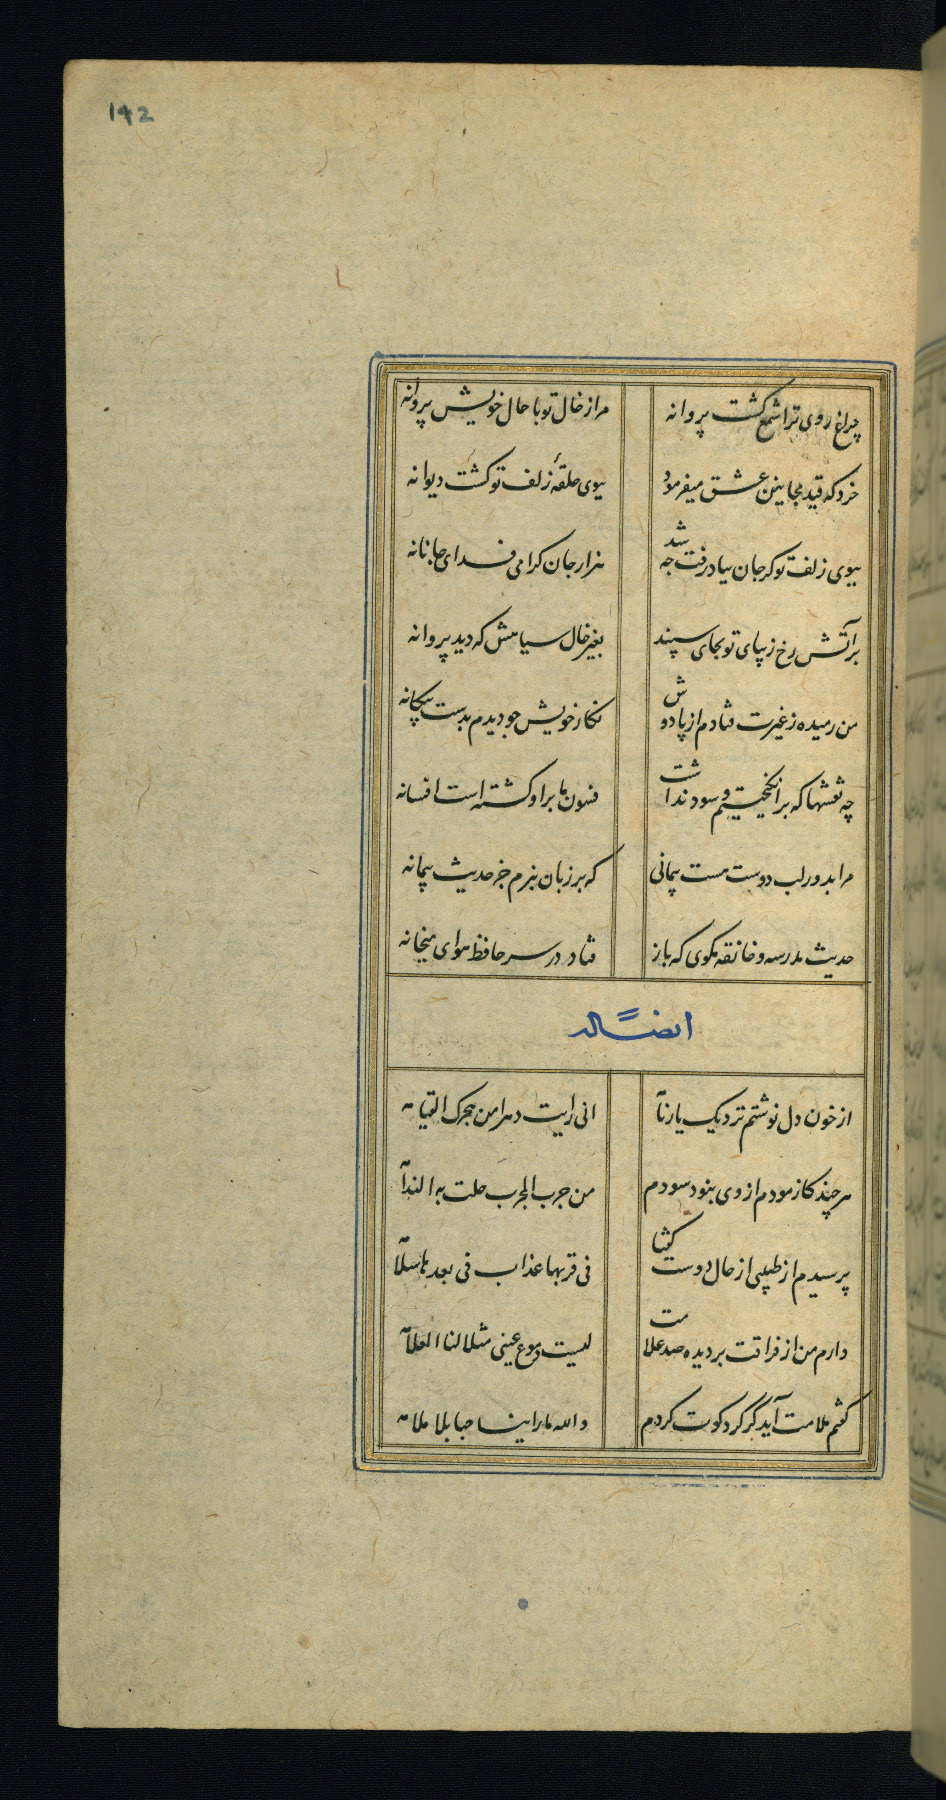 142
چراغ روی ترا شمع گشت پروانه مرا ز خال تو با حال خویش پروانه
خرد که قید مجانین عشق میفرمود ببوی حلقهٔ زلف تو گشت دیوانه
ببوی زلف تو گر جان بباد رفت چه شد هزار جان گرامی فدای جانانه
بر آتش رخ زیبای تو بجای سپند بغیر خال سیاهش که دید پروانه
من رمیده ز غیرت فتادم از پا دوش نگار خویش چو دیدم بدست بیگانه
چه نقشها که برانگیختیم و سود نداشت فسون ما بر او گشته است افسانه
مرا بدور لب دوست هست پیمانی که بر زبان نبرم جز حدیث پیمانه
حدیث مدرسه و خانقه مگوی که باز فتاد در سر حافظ هوای میخانه
ایضاً له
از خون دل نوشتم نزدیک یار نامه انی رایت دهرا من هجرک القیامه
هر چند کازمودم از وی نبود سودم من جرب المجرب حلت به الندامه
پرسیدم از طبیبی از حال دوست گفتا فی قربها عذاب فی بعدها السلامه
دارم من از فراقت بر دیده صد علامت لیست دموع عینی مثلا لنا العلامه
گفتم ملامت آید گر گرد کوت گردم والله ما راینا حبا بلا ملامه